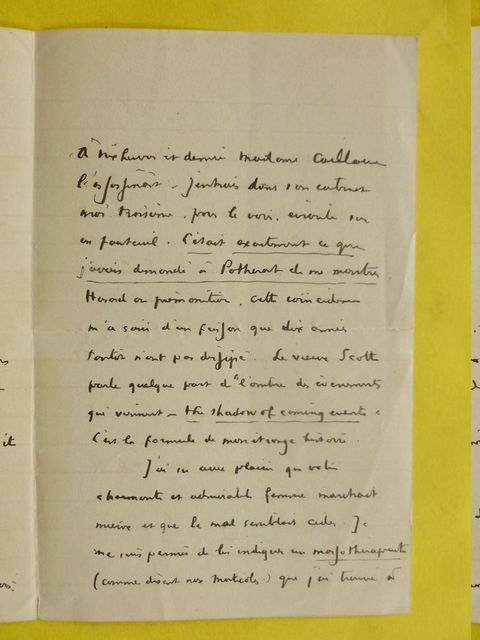 À six heures et demie Madame Caillaux
l'assassinait. J'entrais dans son cabinet
moi troisième, pour le voir, écroulé sur
un fauteuil. C'était exactement ce que
j'avais demandé à Potherat de me montrer.
Hasard ou prémonition, cette coïncidence
m'a saisi d'un frisson que dix années
tantôt n'ont pas dissipé. Le vieux Scott
parle quelque part de l'ombre des événements
qui viennent – the shadow of coming events.
C'est la formule de mon étrange histoire.
J'ai su avec plaisir que votre
charmante et admirable femme marchait
mieux et que le mal semblait céder. Je
me suis permis de lui indiquer un massothérapeute
(comme disent nos morticoles) que j'ai trouvé à